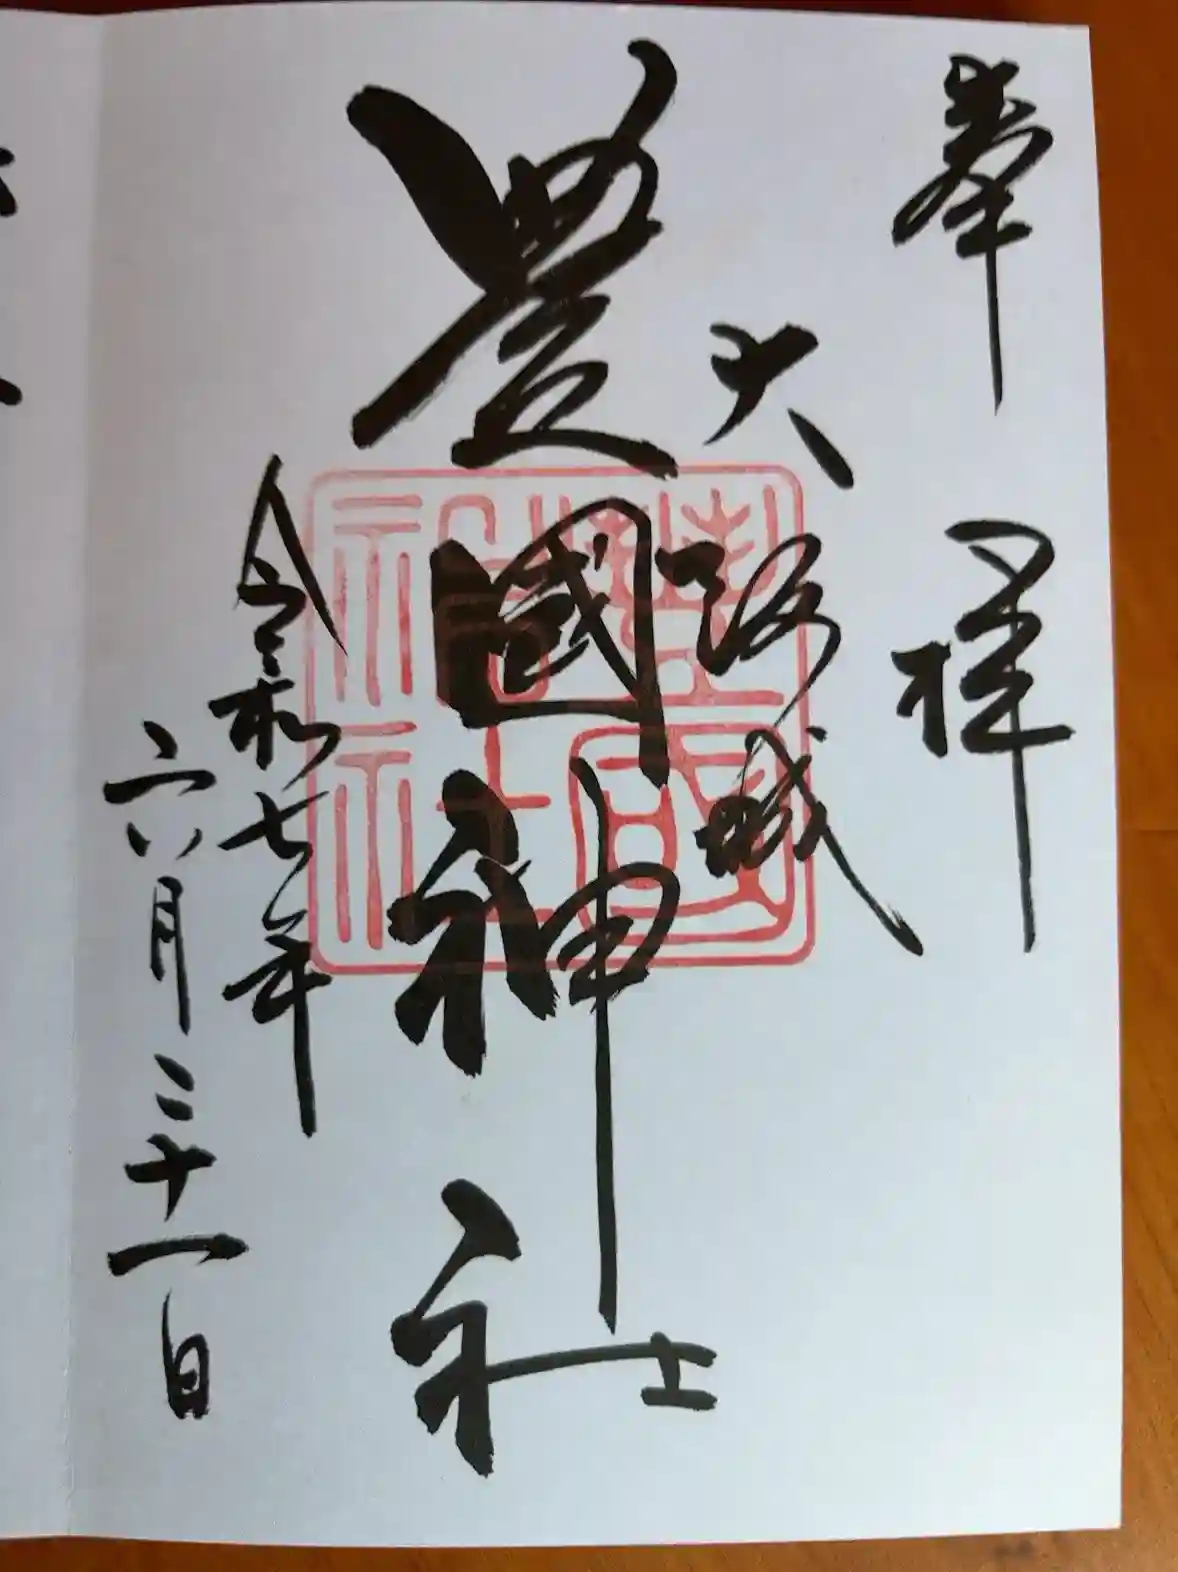 奉拝
大阪城
豊國神社
令和七年
六月二十一日
豊国神社